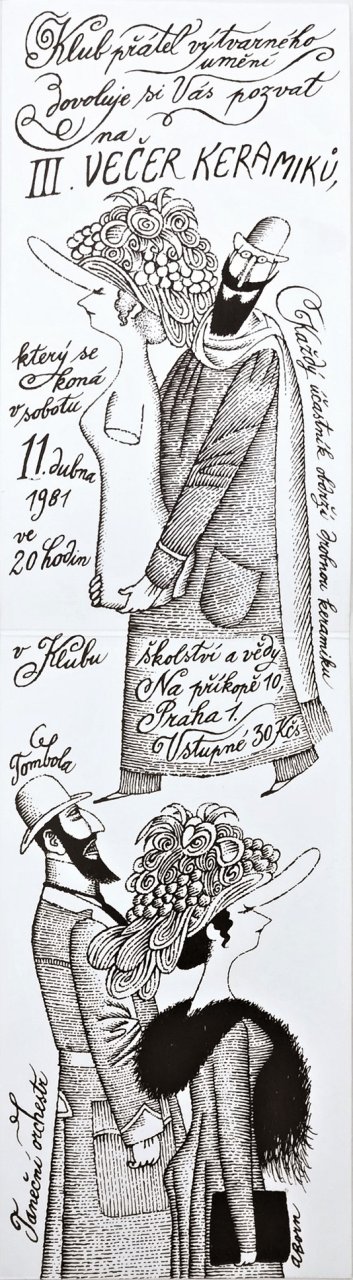 Klub přátel výtvarného
umění
dovoluje si Vás pozvat
na
III. VEČER KERAMIKŮ,
který se
koná
v sobotu
11. dubna
1981
ve
20 hodin
Každý účastník obdrží drobnou keramiku
v Klubu
školství a vědy
Na příkopě 10,
Praha 1.
Vstupné 30 Kčs
Tombola
Taneční orchestr
A. Born